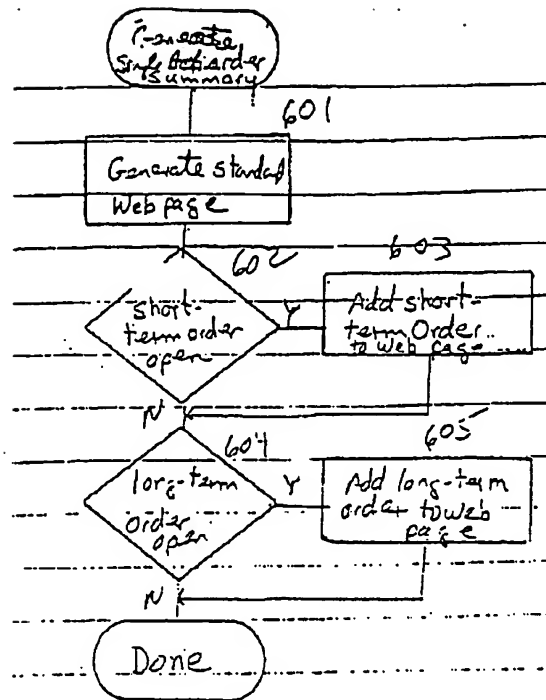 Generate
Single Action order
Summary
601
Generate standard
Web page
602
603
short-
term order
open
Y
Add short-
term Order
to Web page
N
604
605
long-term
order
open
Y
Add long-term
order to Web
page
N
Done